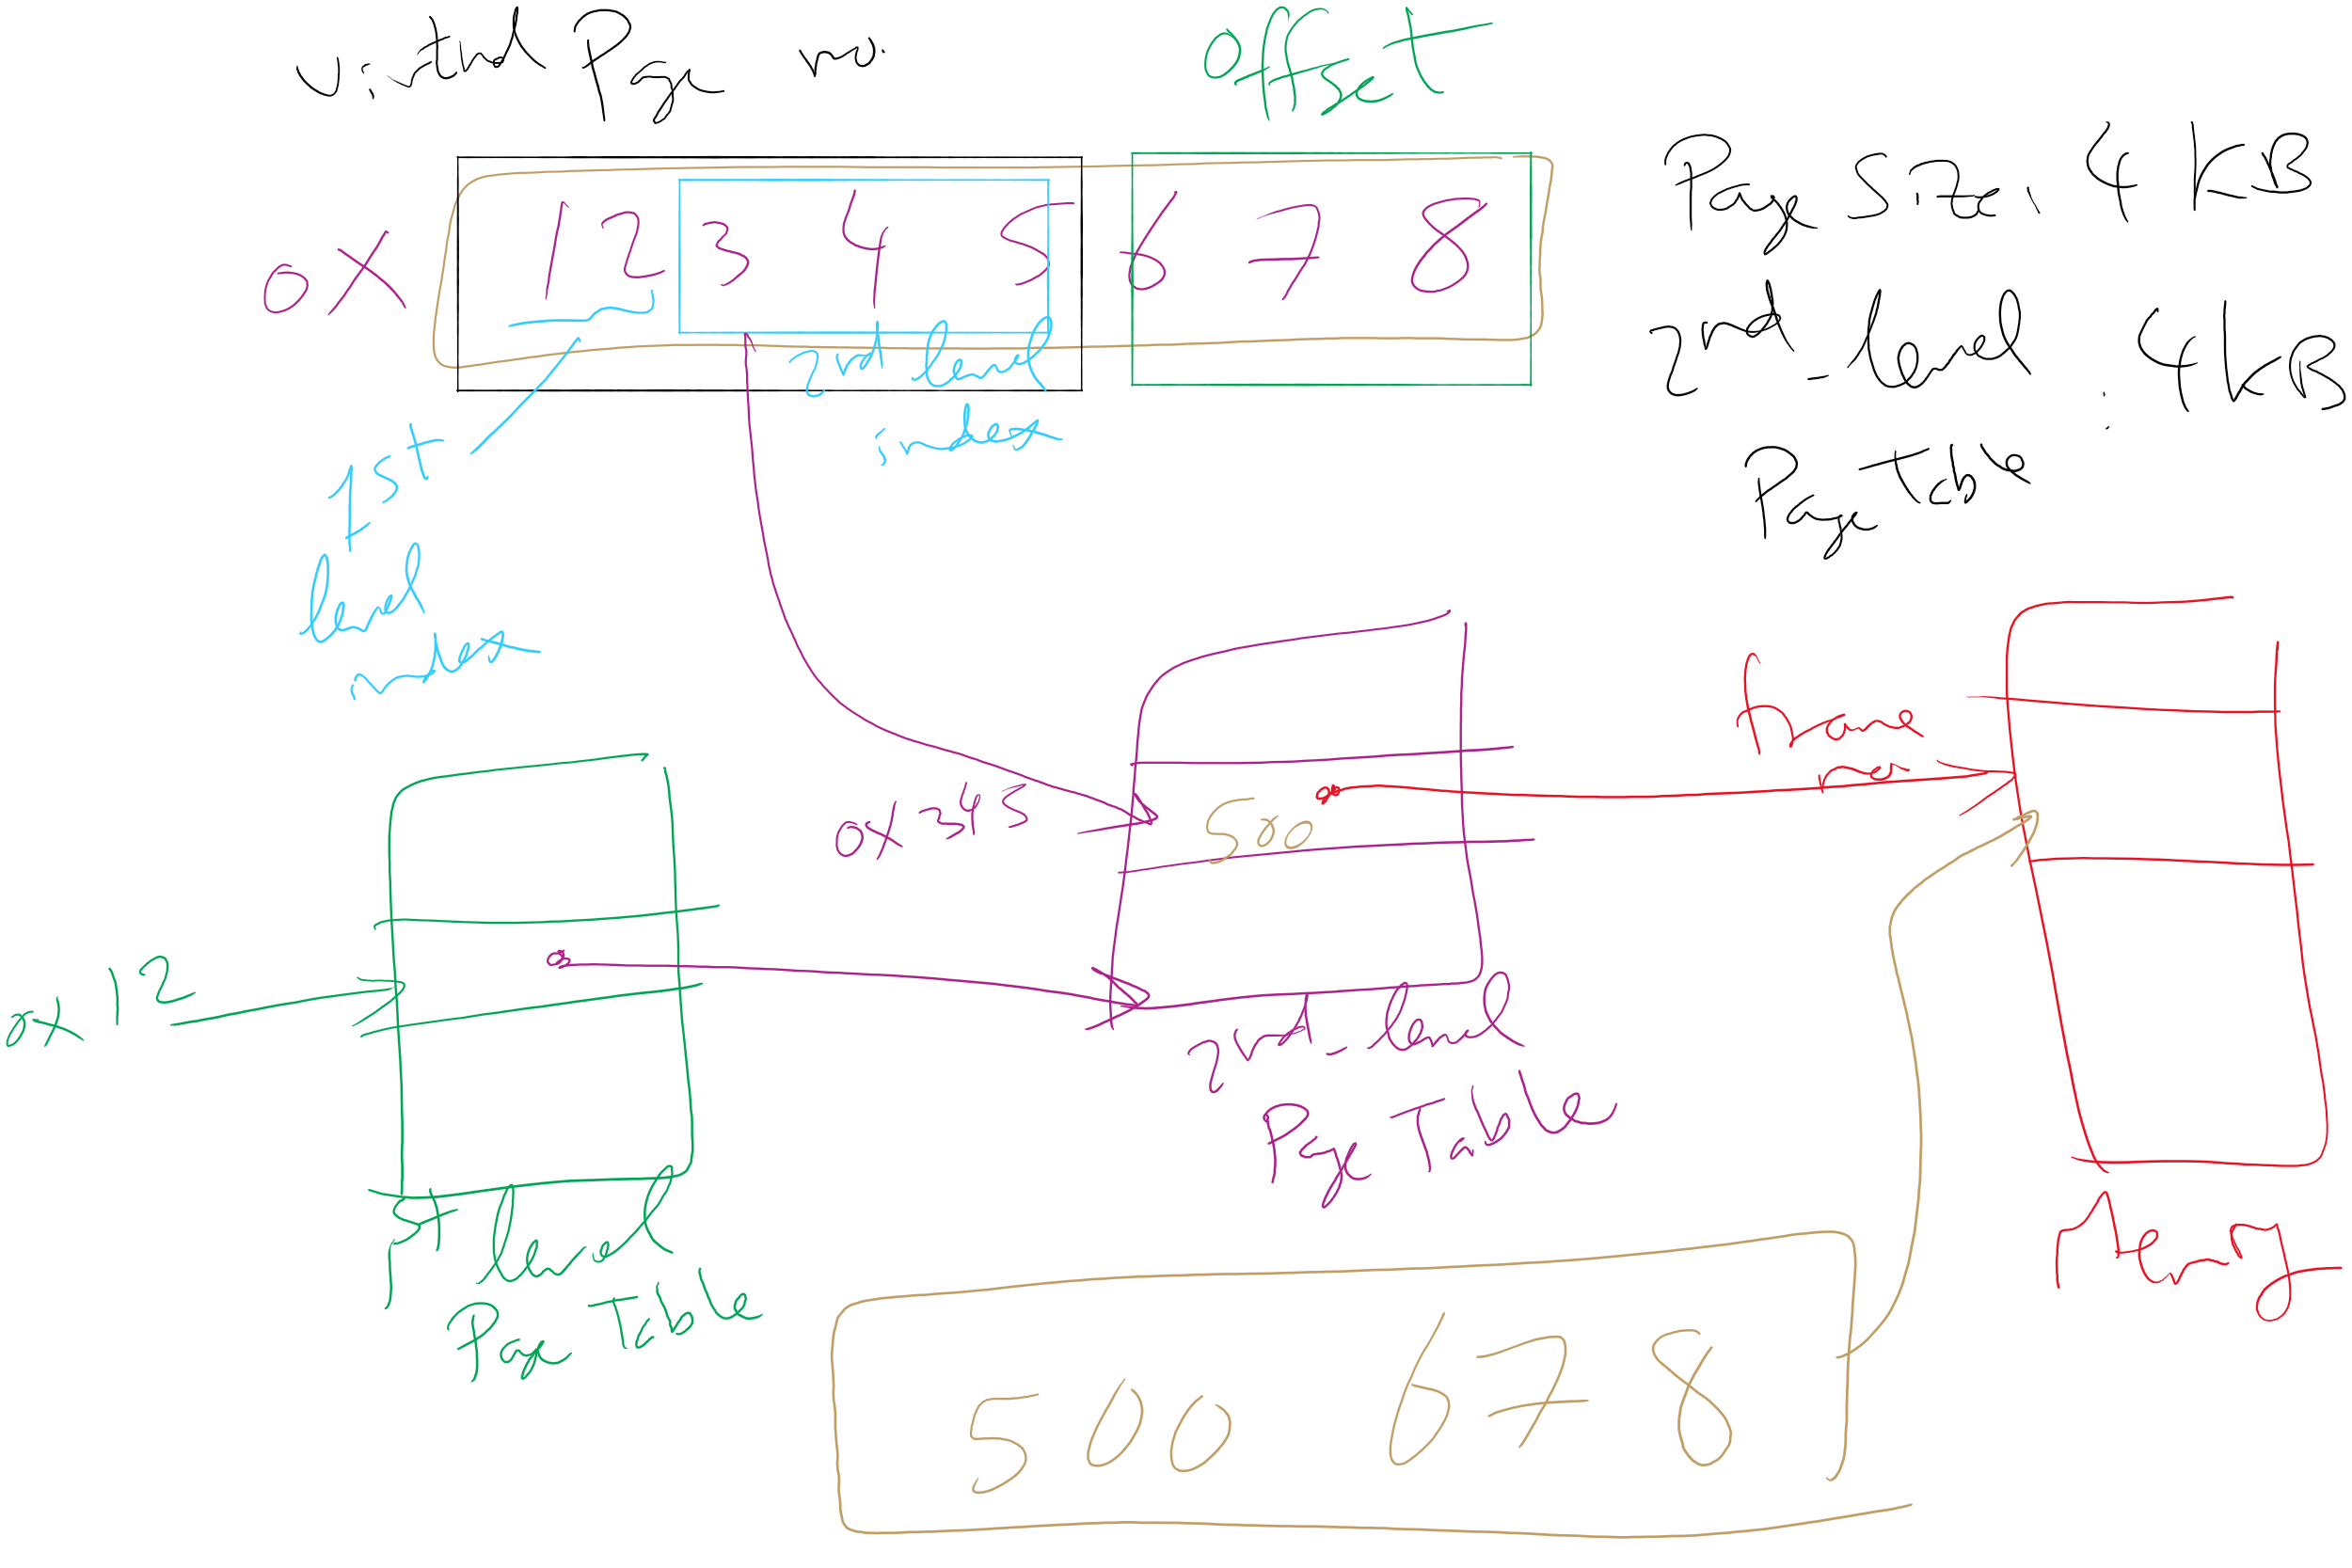 Virtual Page no.
offset
0x 12345 678
Page Size: 4 KB
2nd-level : 4KB
Page Table
1st
level
index
2nd level
index
0x 345
500
frame
no.
0x 12
2nd-level
Page Table
1st level
Page Table
Memory
500 678